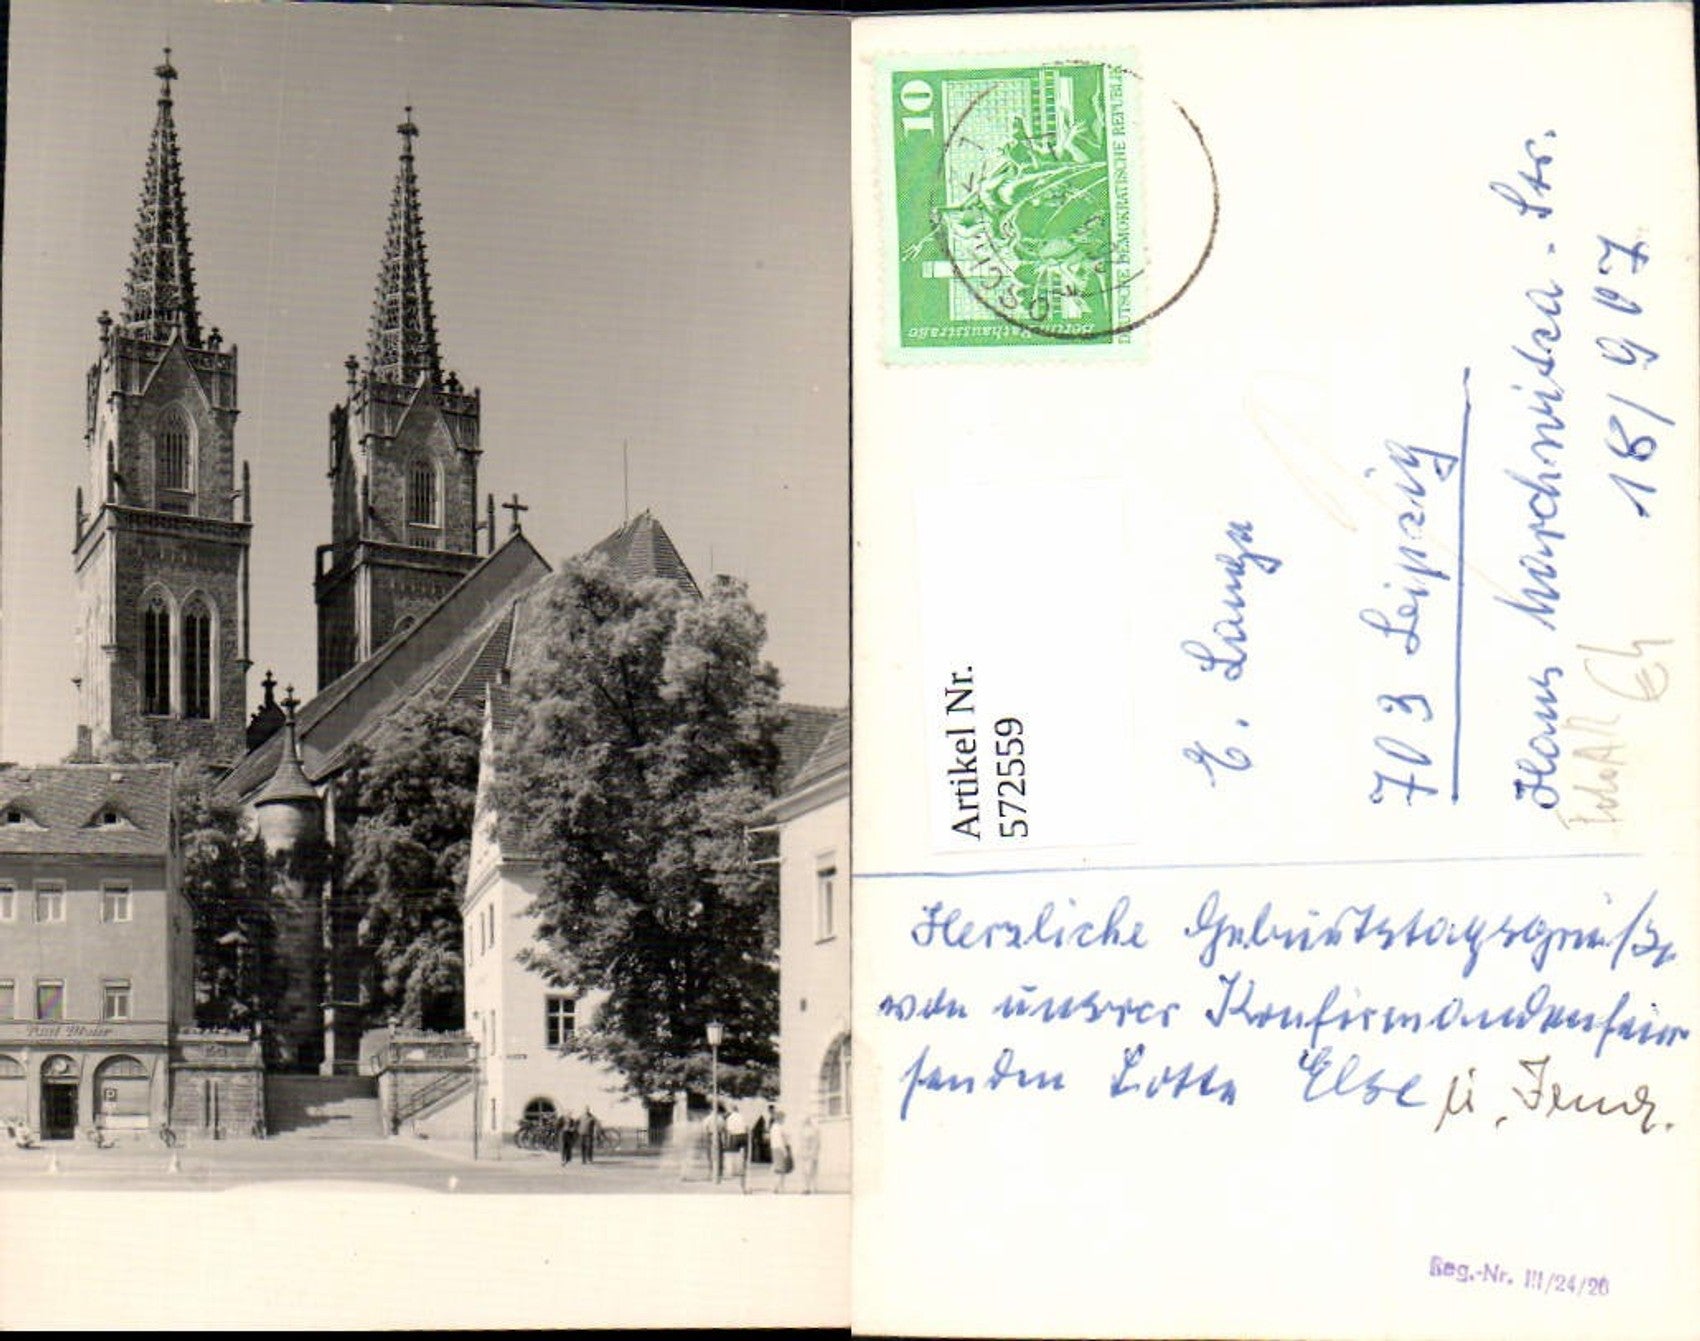 10
Berlin, Rathausstraße
DEUTSCHE DEMOKRATISCHE REPUBLIK
OSCHATZ 1
Artikel Nr.
572559
E. Lange
703 Leipzig
Hans Marchwitza-Str.
18/907
Herzliche Geburtstagsgrüße
von unserer Konfirmandenfeier
senden Lotte Else u.
Reg.-Nr. III/24/20